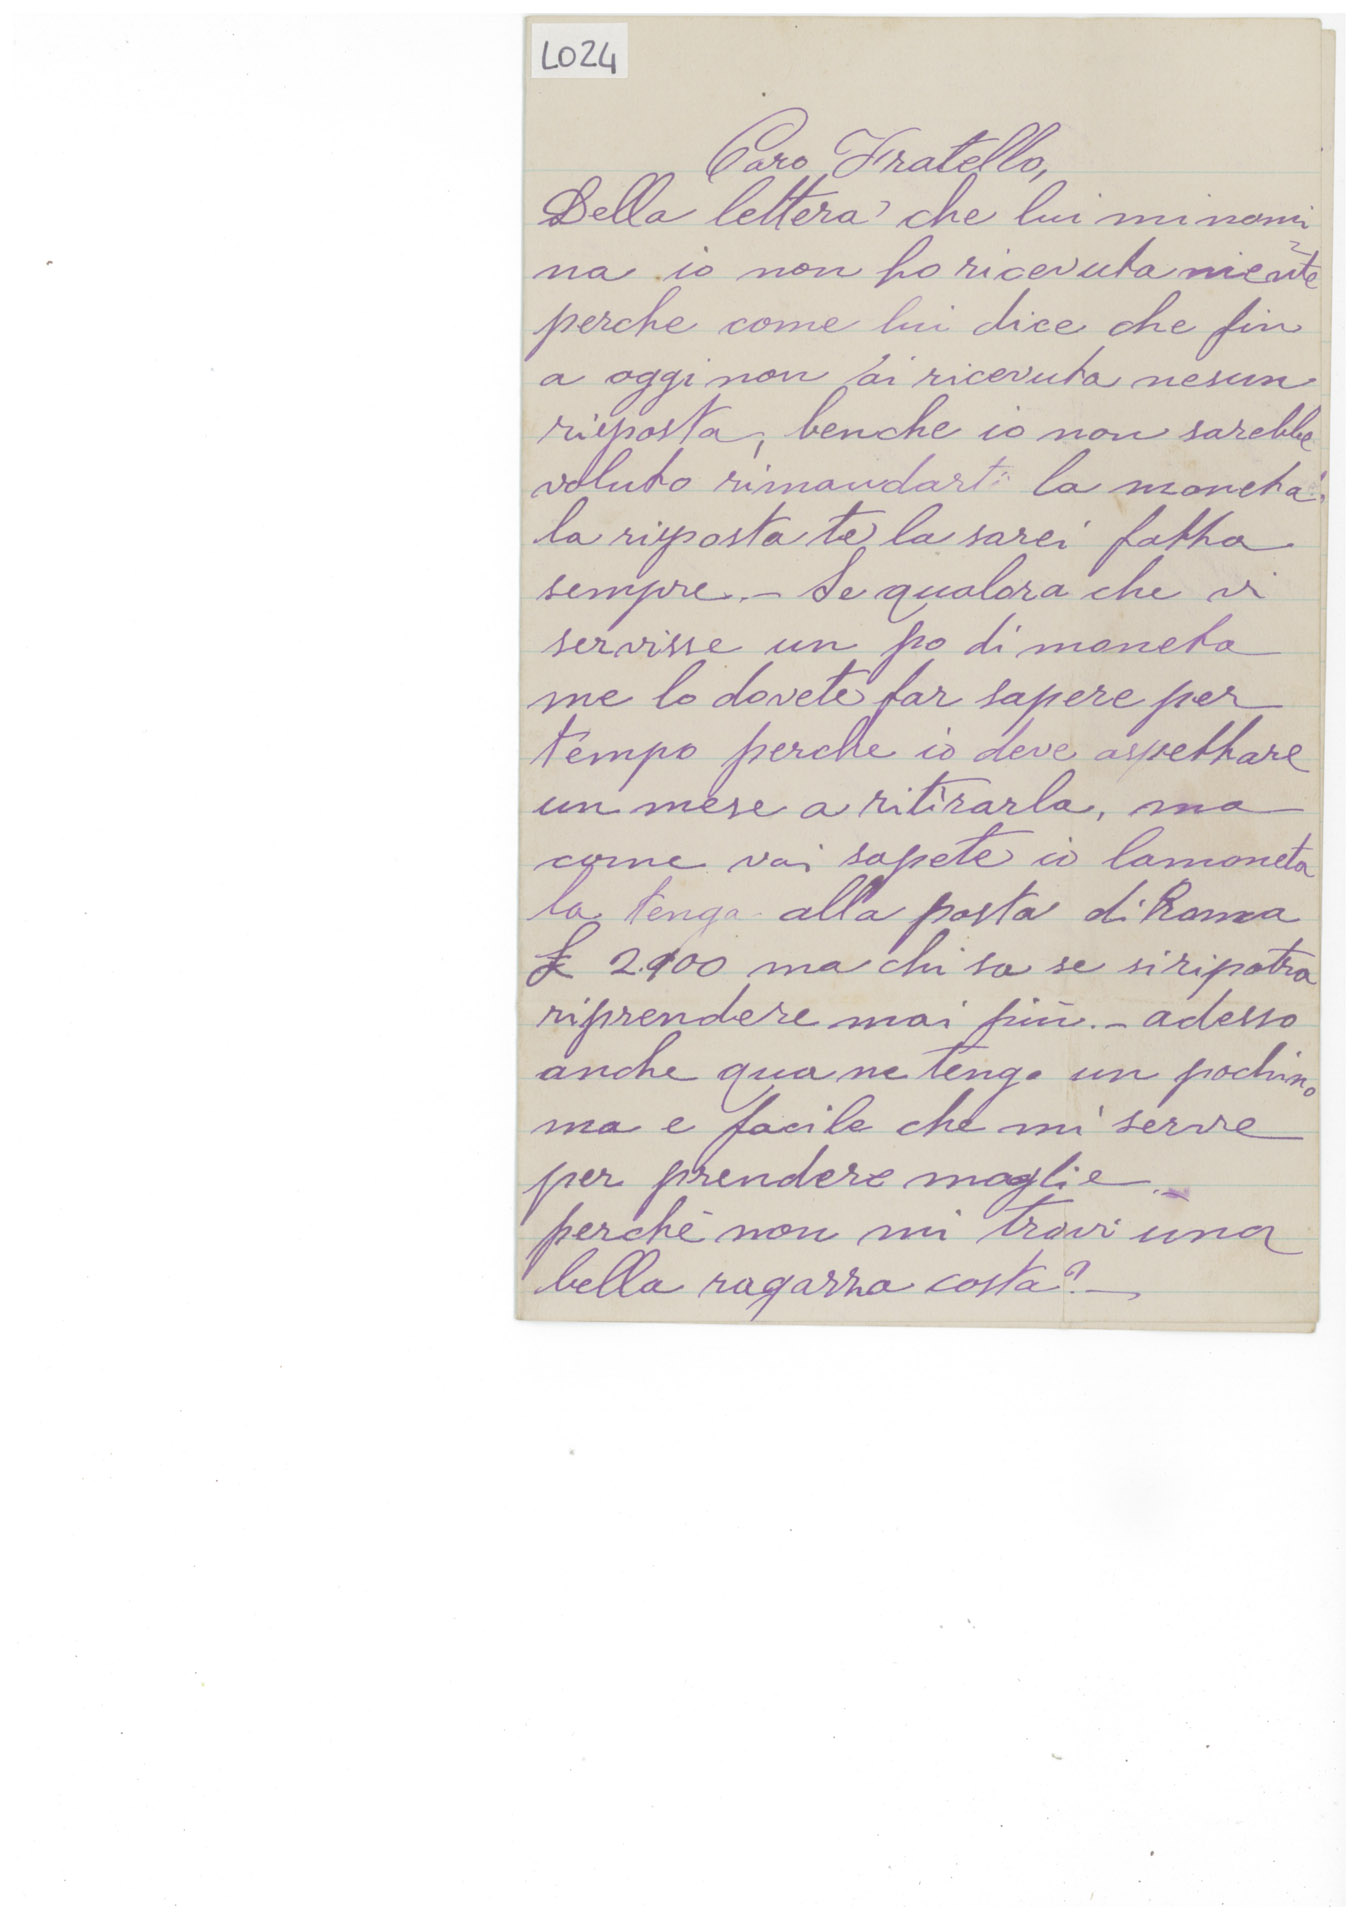 L024
Caro Fratello,
Della lettera che lui mi nomi
na io non ho ricevuta niente
perche come lui dice che fin
a oggi non ai ricevuta nesun
risposta, benche io non sarebbe
voluto rimandarti la moneta
la risposta te la sarei fatta
sempre. - Se qualora che vi
servisse un po di moneta
me lo dovete far sapere per
tempo perche io deve aspettare
un mese a ritirarla, ma
come voi sapete io lamoneta
la tengo alla posta di Roma
£ 2.100 ma chi sa se siripotra
riprendere mai più. - adesso
anche qua ne tengo un pochino
ma e facile che mi serve
per prendere moglie. -
perchè non mi trovi una
bella ragazza costa? -